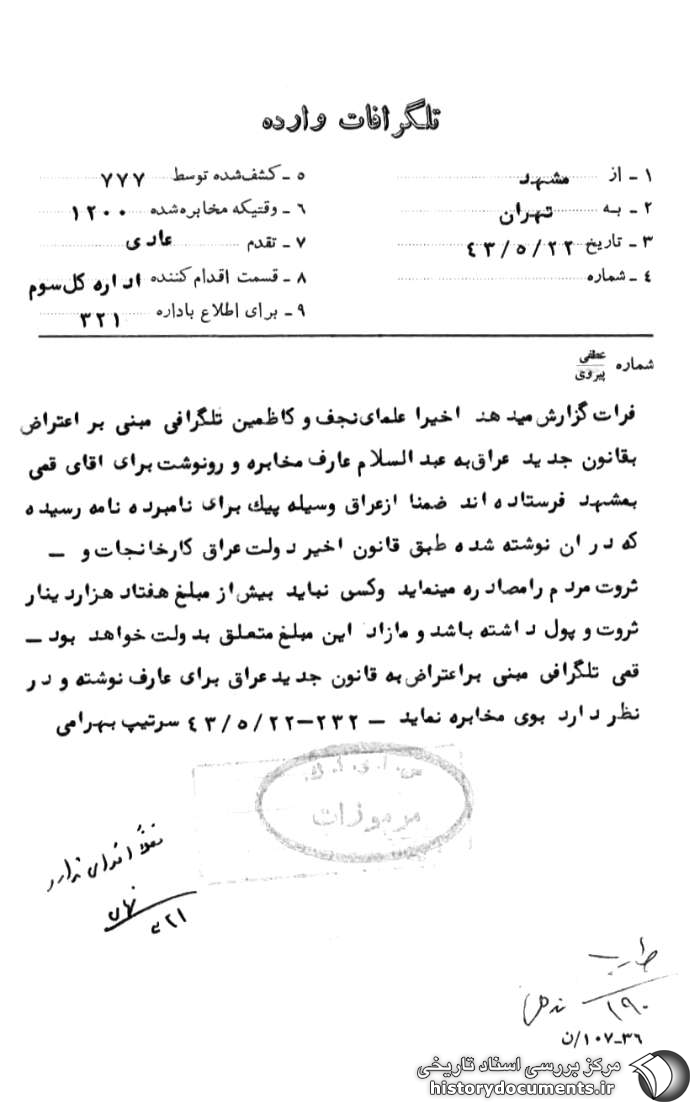 تلگرافات وارده
۱ - از مشهد
۲ - به تهران
۳ - تاریخ ۴۳/۵/۲۲
۴ - شماره
۵ - کشف‌شده توسط ۷۷۷
۶ - وقتیکه مخابره‌شده ۱۲۰۰
۷ - تقدم عادی
۸ - قسمت اقدام کننده اداره کل سوم
۹ - برای اطلاع باداره ۳۲۱
شماره عطفی
پیروی
فرات گزارش میدهد اخیرا علمای نجف و کاظمین تلگرافی مبنی بر اعتراض
بقانون جدید عراق به عبدالسلام عارف مخابره و رونوشت برای اقای قمی
بمشهد فرستاده اند ضمنا ازعراق وسیله پیك برای نامبرده نامه رسیده
که در ان نوشته شده طبق قانون اخیر دولت عراق کارخانجات و –
ثروت مردم رامصادره مینماید وکسی نباید بیش از مبلغ هفتاد هزاردینار
ثروت و پول داشته باشد و مازاد این مبلغ متعلق بدولت خواهد بود –
قمی تلگرافی مبنی براعتراض به قانون جدید عراق برای عارف نوشته و در
نظر دارد بوی مخابره نماید – ۲۳۲-۴۳/۵/۲۲ سرتیپ بهرامی
س. ا. و. ا. ك.
مرموزات
۱۹۰
۳۶-۱۰۷/ن
مرکز بررسی اسناد تاریخی
historydocuments.ir